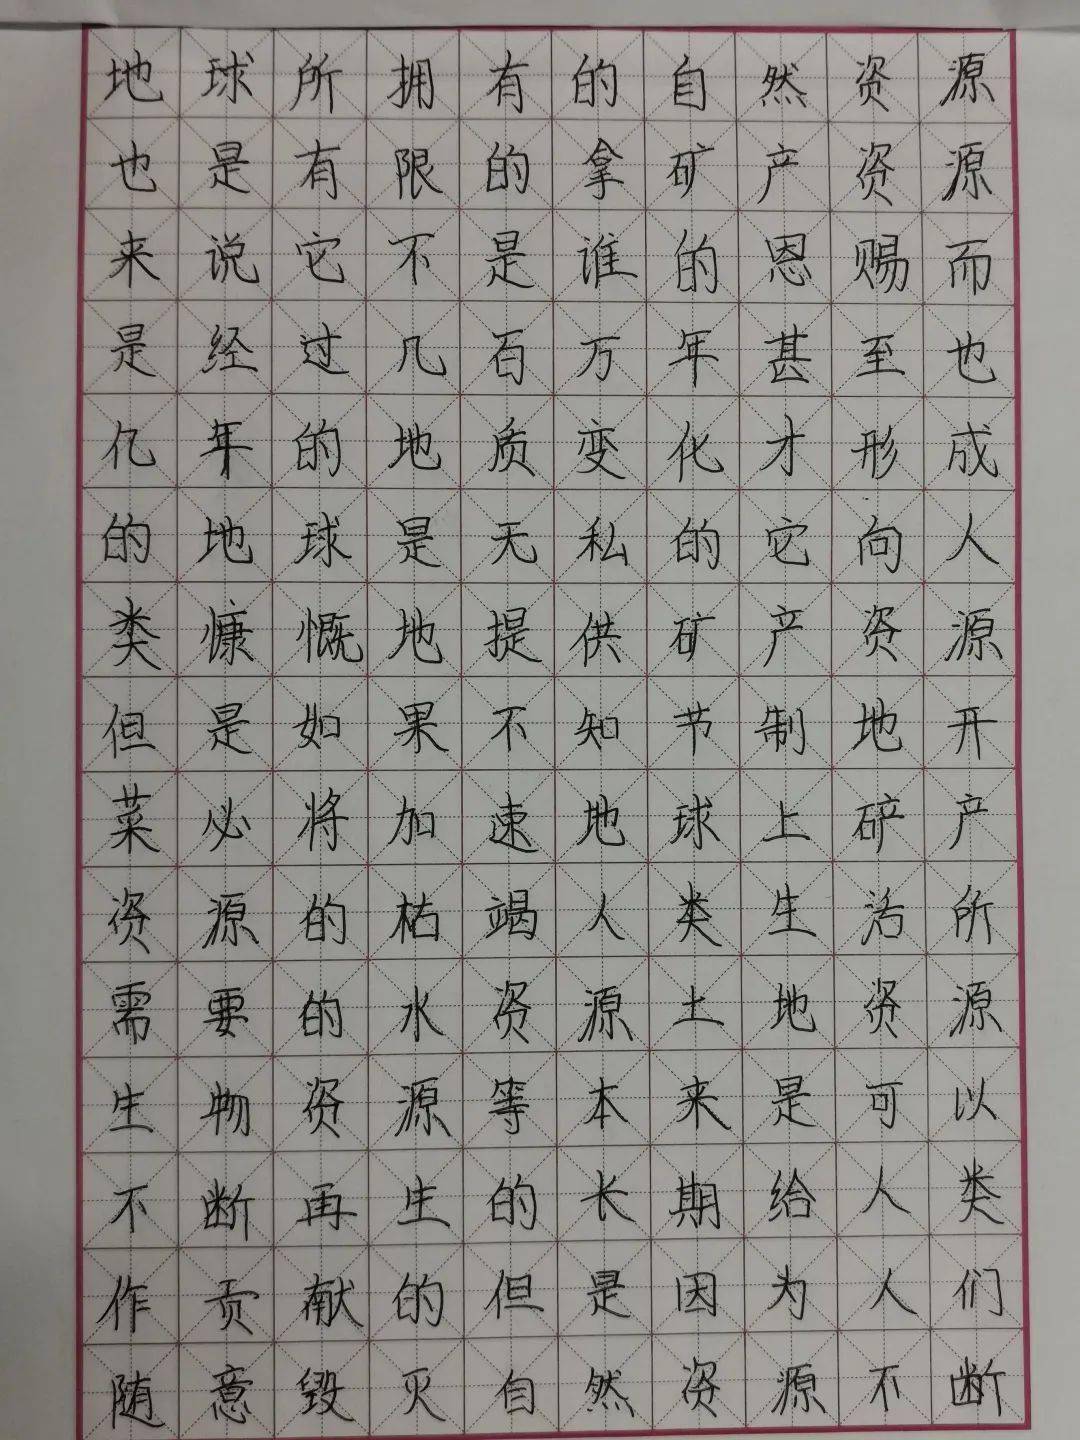 地球所拥有的自然资源
也是有限的拿矿产资源
来说它不是谁的恩赐而
是经过几百万年甚至也
亿年的地质变化才形成
的地球是无私的它向人
类慷慨地提供矿产资源
但是如果不知节制地开
菜必将加速地球上矿产
资源的枯竭人类生活所
需要的水资源土地资源
生物资源等本来是可以
不断再生的长期给人类
作贡献的但是因为人们
随意毁灭自然资源不断